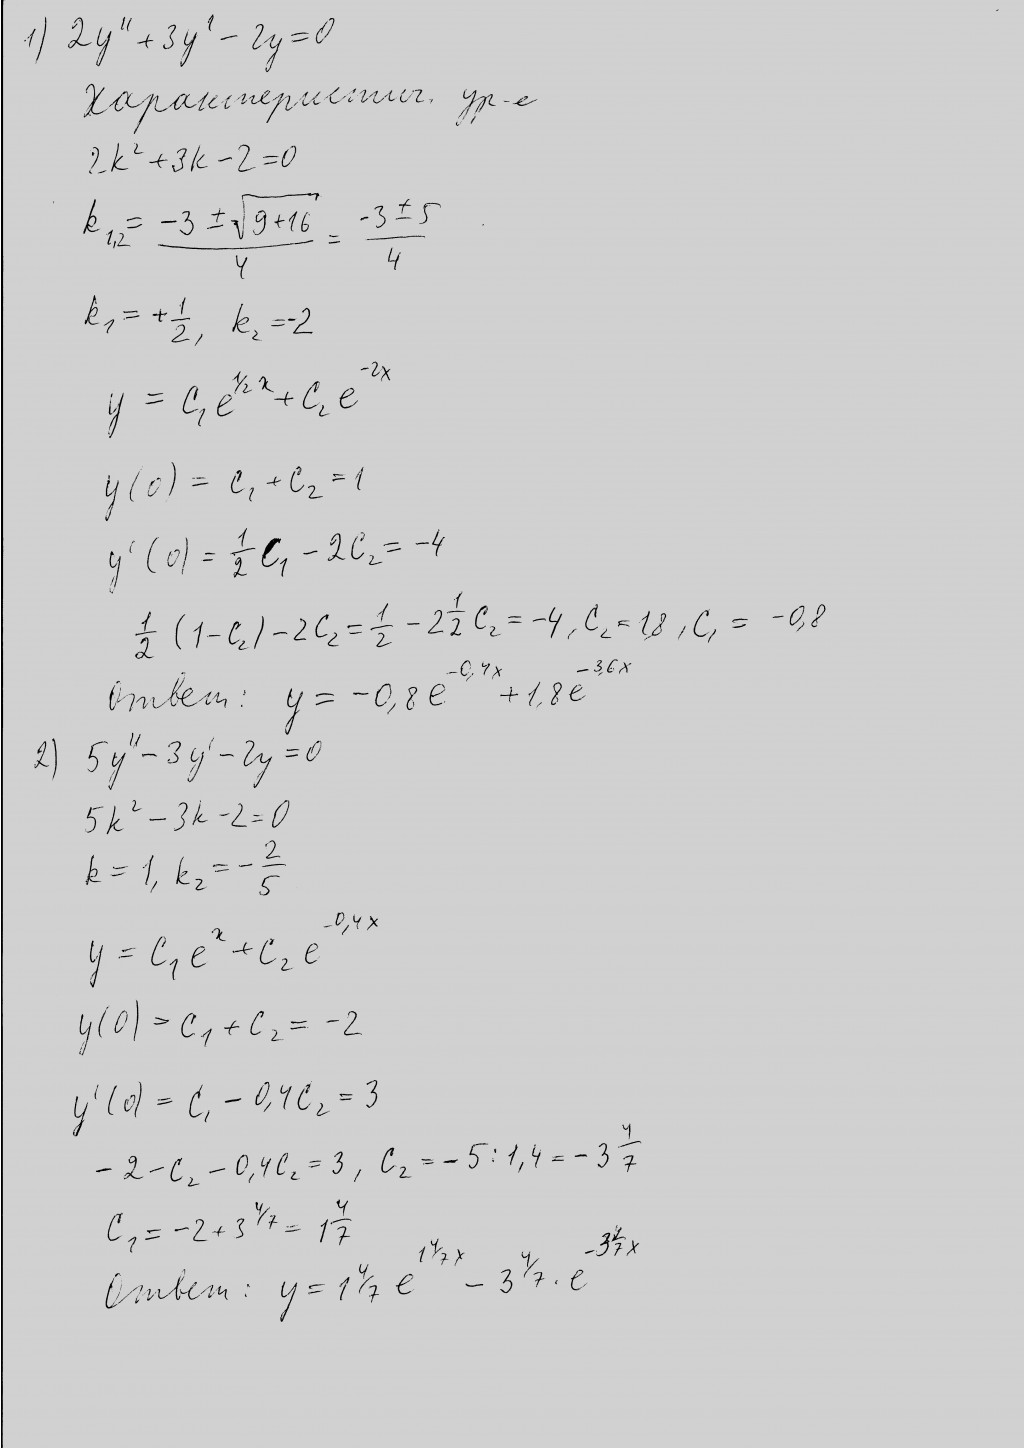 1) 2y" + 3y' - 2y = 0
Характеристич. ур-е
2k² + 3k - 2 = 0
k₁,₂ = (-3 ± √(9+16))/4 = (-3 ± 5)/4
k₁ = +1/2, k₂ = -2
y = C₁e^(1/2 x) + C₂e^(-2x)
y(0) = C₁ + C₂ = 1
y'(0) = 1/2 C₁ - 2C₂ = -4
1/2 (1-C₂) - 2C₂ = 1/2 - 2 1/2 C₂ = -4, C₂ = 1,8, C₁ = -0,8
Ответ: y = -0,8e^(-0,4x) + 1,8e^(-3,6x)
2) 5y" - 3y' - 2y = 0
5k² - 3k - 2 = 0
k = 1, k₂ = -2/5
y = C₁e^x + C₂e^(-0,4x)
y(0) = C₁ + C₂ = -2
y'(0) = C₁ - 0,4C₂ = 3
-2 - C₂ - 0,4C₂ = 3, C₂ = -5 : 1,4 = -3 4/7
C₁ = -2 + 3 4/7 = 1 4/7
Ответ: y = 1 4/7 e^(1 4/7 x) - 3 4/7 · e^(-3 4/7 x)